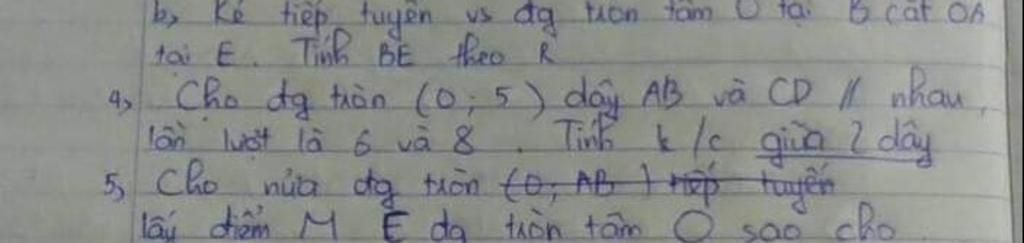 b, Kẻ tiếp tuyến vs đg tròn tâm O tại B cắt OA
tại E. Tính BE theo R
4, Cho đg tròn (O; 5) dây AB và CD // nhau,
lần lượt là 6 và 8. Tính k/c giữa 2 dây
5, Cho nửa đg tròn (O; AB) tiếp tuyến
lấy điểm M E đg tròn tâm O sao cho